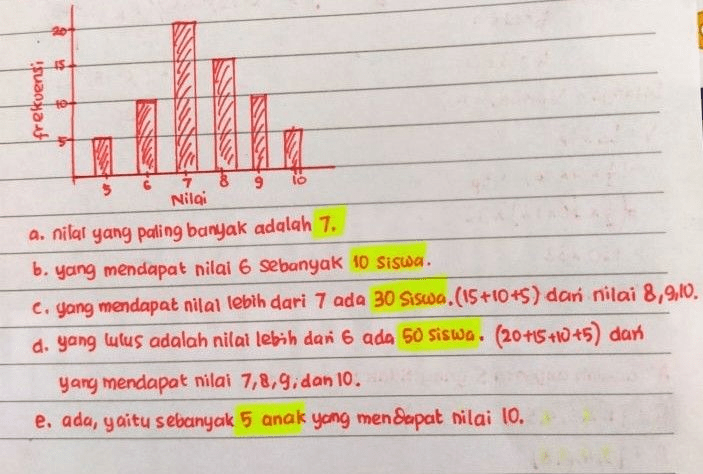 20
15
10
5
frekuensi
5 6 7 8 9 10
Nilai
a. nilai yang paling banyak adalah 7.
b. yang mendapat nilai 6 sebanyak 10 siswa.
c. yang mendapat nilai lebih dari 7 ada 30 siswa. (15+10+5) dari nilai 8,9,10.
d. yang lulus adalah nilai lebih dari 6 ada 50 siswa. (20+15+10+5) dari
yang mendapat nilai 7,8,9, dan 10.
e. ada, yaitu sebanyak 5 anak yang mendapat nilai 10.